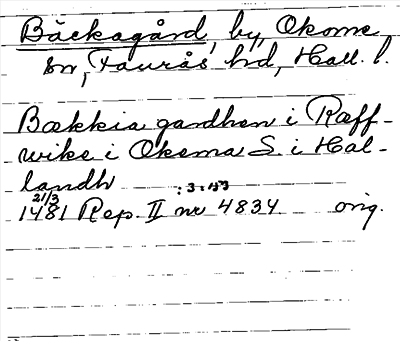 Bäckagård, by, Okome
sn, Faurås hd, Hall. l.
Bækkia gardhen i Ræff-
wike i Okema S. i Hal-
landh
21/3 :3:
1481 Rep. II nr 4834 orig.